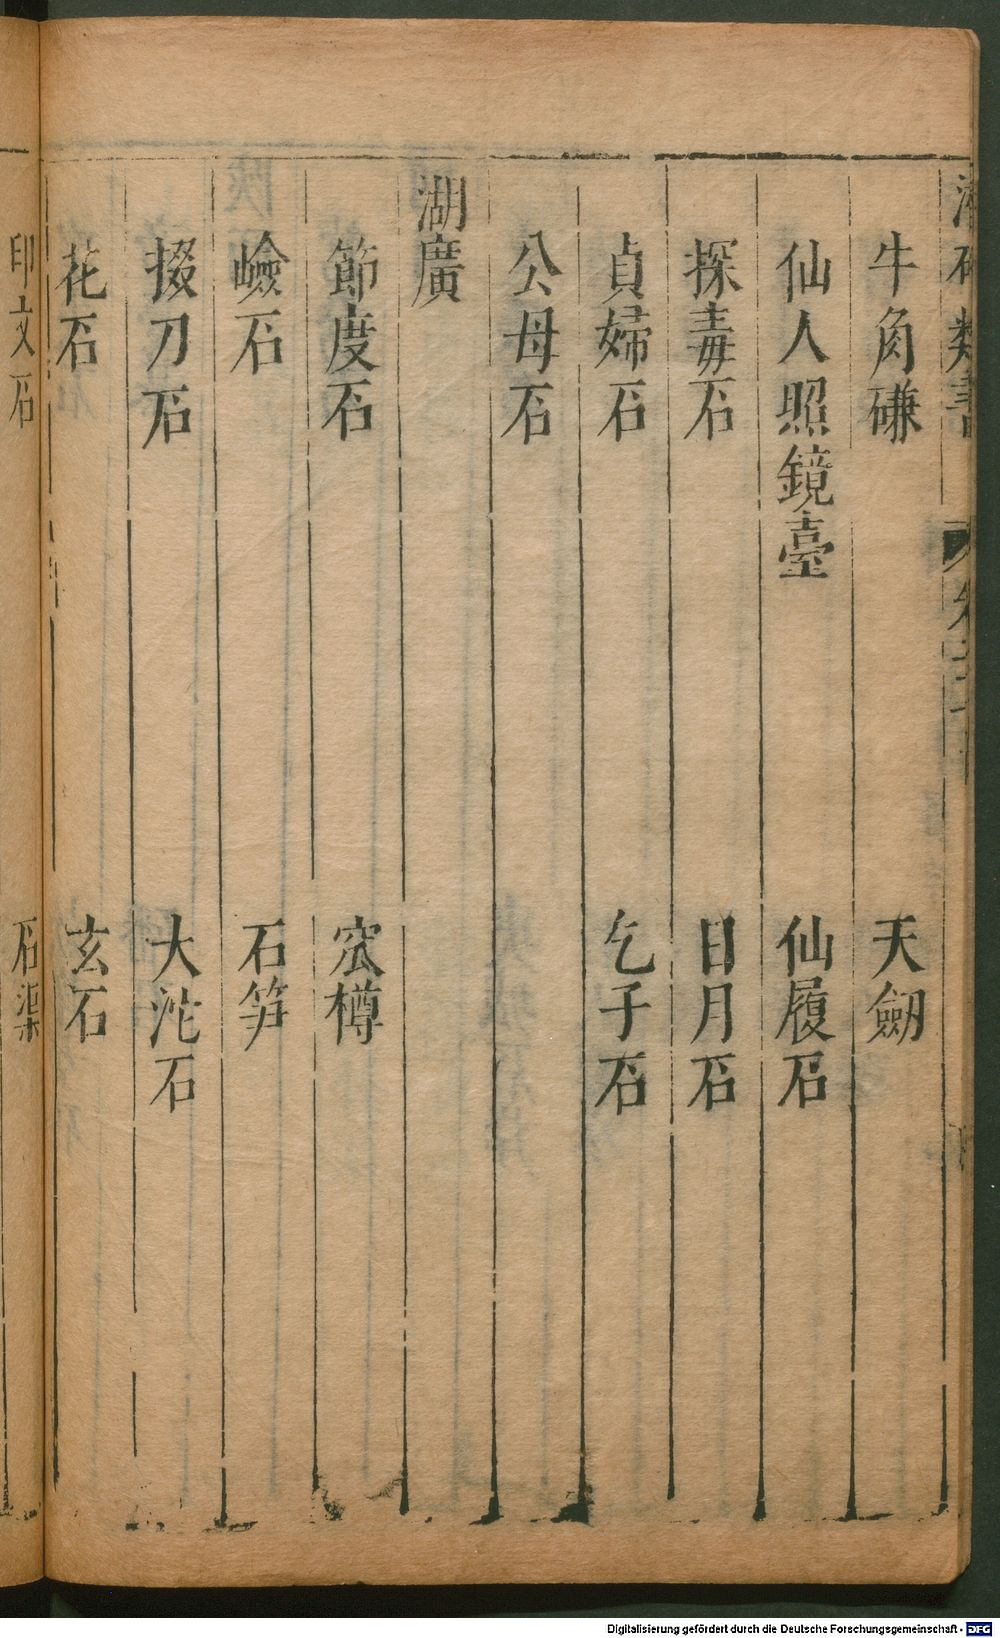 類書
牛角磏 天劒
仙人照鏡臺 仙履石
探毒石 日月石
貞婦石 乞子石
公母石
湖廣
節度石 窊樽
嶮石 石笋
掇刀石 大沱石
花石 玄石
印文石 石渠
Digitalisierung gefördert durch die Deutsche Forschungsgemeinschaft - DFG